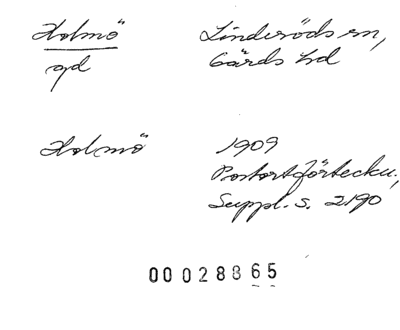 Holmö Linderöds sn,
gd Gärds hd
Holmö 1909
Postortförteckn.,
Suppl. s. 2190
00 028865